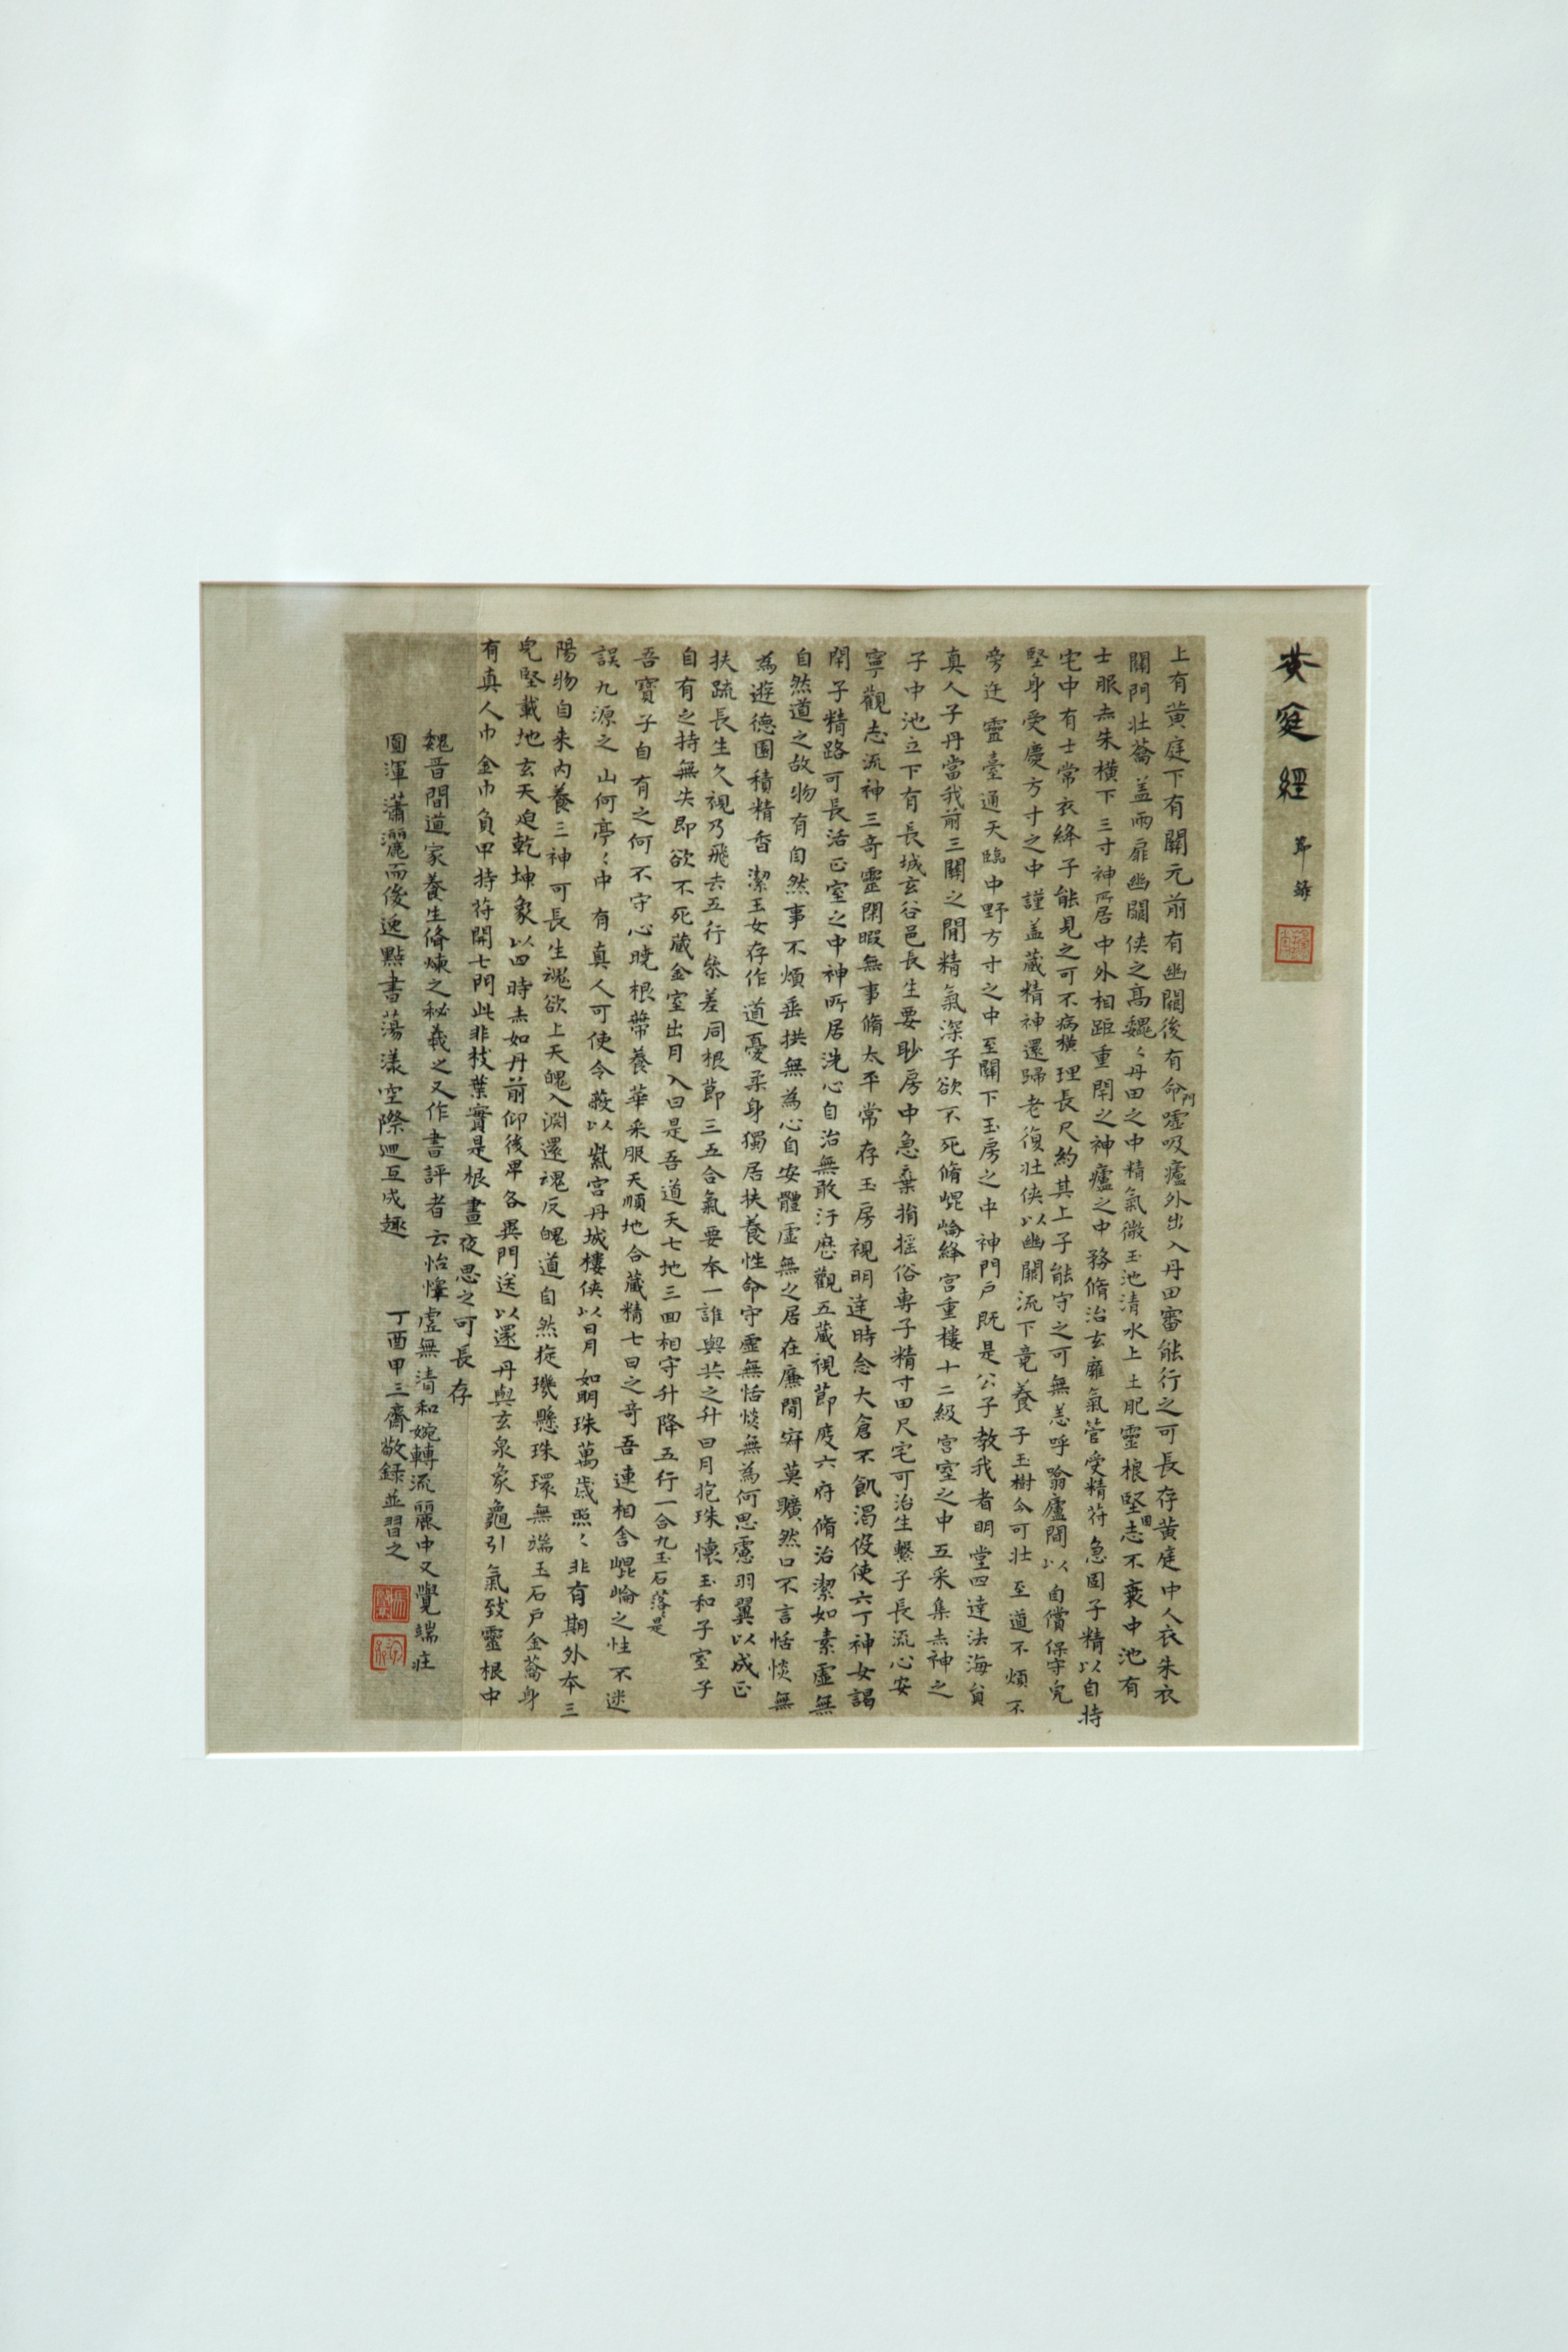 黄庭經 節錄
上有黄庭下有關元前有幽闕後有命門噓吸廬外出入丹田審能行之可長存黄庭中人衣朱衣
關門壯蘥盖兩扉幽闕俠之高魏〻丹田之中精氣微玉池清水上土肥靈根堅志不衰中池有
士服赤朱横下三寸神所居中外相距重閉之神廬之中務脩治玄廱氣管受精符急固子精以自持
宅中有士常衣絳子能見之可不病横理長尺約其上子能守之可無恙呼噏廬間以自償保守皃
堅身受慶方寸之中謹盖藏精神還歸老復壯俠以幽闕流下竟養子玉樹令可壯至道不煩不
旁迕靈臺通天臨中野方寸之中至關下玉房之中神門戶既是公子教我者明堂四達法海員
真人子丹當我前三關之間精氣深子欲不死脩崐崘絳宫重樓十二級宫室之中五采集赤神之
子中池立下有長城玄谷邑長生要眇房中急棄捐摇俗專子精寸田尺宅可治生繫子長流心安
寧觀志流神三奇靈閑暇無事脩太平常存玉房視明達時念大倉不飢渴伇使六丁神女謁
閉子精路可長活正室之中神所居洗心自治無敢汙歷觀五藏視節度六府脩治潔如素虚無
自然道之故物有自然事不煩垂拱無為心自安體虚無之居在廉間寂莫曠然口不言恬惔無
為遊德園積精香潔玉女存作道憂柔身獨居扶養性命守虚無恬惔無為何思慮羽翼以成正
扶疏長生久視乃飛去五行參差同根節三五合氣要本一誰與共之升日月抱珠懷玉和子室子
自有之持無失即欲不死藏金室出月入日是吾道天七地三回相守升降五行一合九玉石落〻是
吾寶子自有之何不守心曉根蔕養華采服天順地合藏精七日之奇吾連相舍崐崘之性不迷
誤九源之山何亭〻中有真人可使令蔽以紫宫丹城樓俠以日月如明珠萬歲照〻非有期外本三
陽物自来内養三神可長生魂欲上天魄入淵還魂反魄道自然琁璣懸珠環無端玉石戶金蘥身
皃堅載地玄天迫乾坤象以四時赤如丹前仰後卑各異門送以還丹與玄泉象龜引氣致靈根中
有真人巾金巾負甲持符開七門此非枝葉實是根晝夜思之可長存
魏晋間道家養生脩煉之秘義之又作書評者云怡懌虚無清和婉轉流麗中又覺端莊
圓渾瀟灑而後逸點畫蕩漾空際迴互成趣 丁酉甲三齋敬録並習之